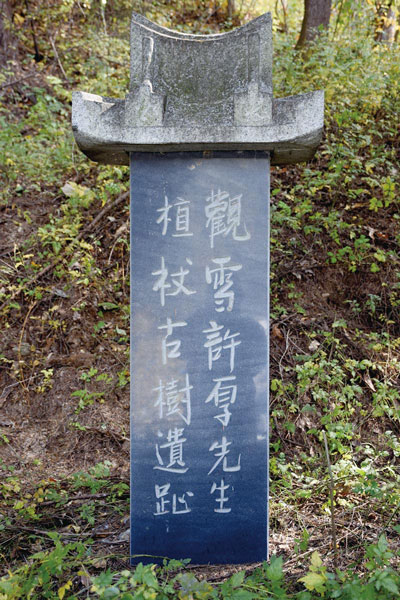 觀雪許厚先生
植杖古樹遺趾